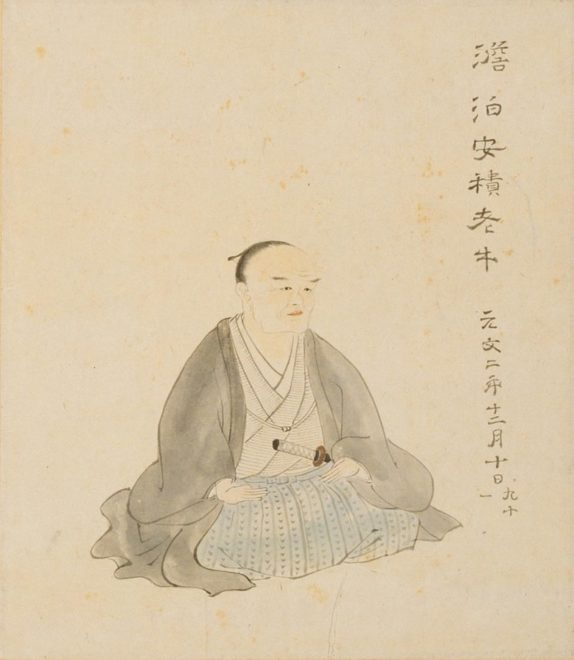 澹泊安積老牛 元文二年十二月十日
九十
一